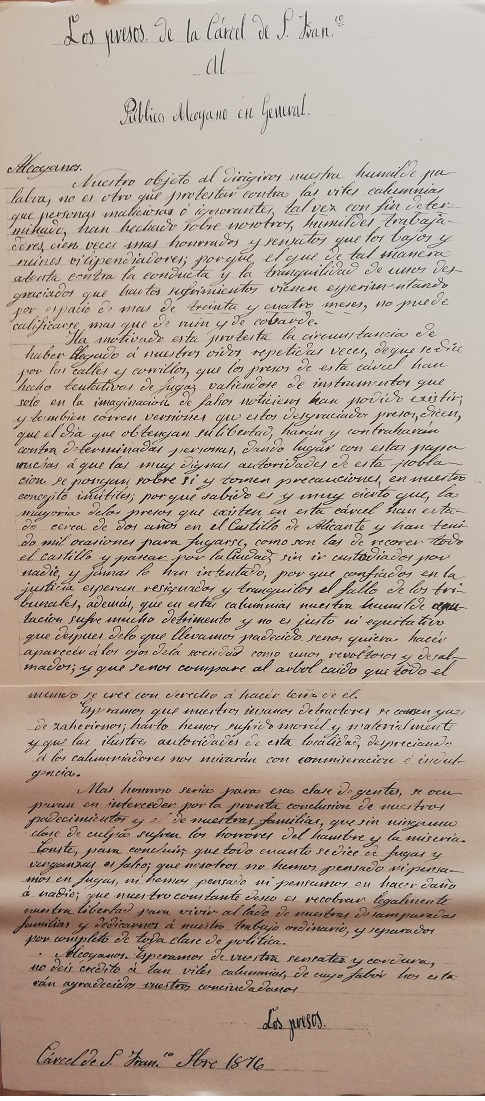 Los presos de la Cárcel de S. Fran.co
al
Público Alcoyano en General.
Alcoyanos.
Nuestro objeto al dirigiros nuestra humilde pa
labra, no es otro que protestar contra las viles calumnias
que personas maliciosas ó ignorantes, tal vez con fin deter-
minado, han hechado sobre nosotros, humildes trabaja-
dores, cien veces mas honrados y sensatos que los bajos y
ruines vilipendiadores; porque el que de tal manera
atenta contra la conducta y la tranquilidad de unos des-
graciados que hartos sufrimientos vienen esperimentando
por espacio de mas de treinta y cuatro meses, no puede
calificarse, mas que de ruin y de cobarde.
Ha motivado esta protesta la circunstancia de
haber llegado á nuestros oidos repetidas veces, de que se dice
por las calles y corrillos, que los presos de esta cárcel han
hecho tentativas de fugas, valiendose de instrumentos que
solo en la imaginacion de falsos noticieros han podido existir;
y tambien corren versiones que estos desgraciados presos, dicen,
que el dia que obtengan su libertad, harán y contraharán
contra determinadas personas, dando lugar con estas papa
ruchas á que las muy dignas autoridades de esta pobla-
cion se pongan sobre si y tomen precauciones, en nuestro
concepto inútiles; porque sabido es y muy cierto que, la
mayoria de los presos que existen en esta cárcel han esta-
do cerca de dos años en el Castillo de Alicante y han teni
do mil ocasiones para fugarse, como son las de recorer todo
el castillo y pasear por la Ciudad, sin ir custodiados por
nadie, y jamas lo han intentado, por que confiados en la
justicia esperan resignados y tranquilos el fallo de los tri-
bunales, además, que en estas calumnias nuestra humilde repu
tacion sufre mucho detrimento y no es justo ni equitativo
que despues de lo que llevamos padecido se nos quiera hacer
aparecer á los ojos de la sociedad como unos revoltosos y desal-
mados; y que se nos compare al arbol caido que todo el
mundo se cree con derecho á hacer leña de el.
Esperamos que nuestros insanos detractores se cansen ya
de zaherirnos; harto hemos sufrido moral y materialmente
y que las ilustres autoridades de esta localidad, despreciando
á los calumniadores nos mirarán con conmiseracion é indul-
gencia.
Mas honroso seria para esa clase de gentes, se ocu
paran en interceder por la pronta conclusion de nuestros
padecimientos y de nuestras familias, que sin ninguna
clase de culpa sufren los horrores del hambre y la miseria.
Conste, para concluir, que todo cuanto se dice de fugas y
venganzas es falso; que nosotros no hemos pensado ni pensa-
mos en fugas, ni hemos pensado ni pensamos en hacer daño
á nadie; que nuestro constante deseo es recobrar legalmente
nuestra libertad para vivir al lado de nuestras desamparadas
familias y dedicarnos á nuestro trabajo ordinario, y separados
por completo de toda clase de política.
Alcoyanos. Esperamos de vuestra sensatez y cordura,
no deis crédito á tan viles calumnias, de cuyo fabor hos esta
rán agradecidos vuestros conciudadanos
Los presos.
Cárcel de S. Fran.co Sbre 1876